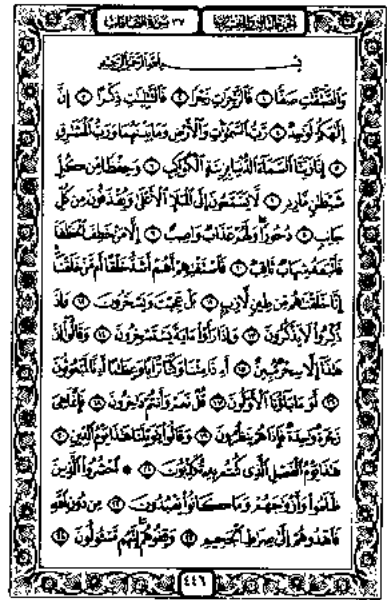 الجزء الثالث والعشرون ٣٧ سورة الصافات
بسم الله الرحمن الرحيم
وَالصَّافَّاتِ صَفًّا ١ فَالزَّاجِرَاتِ زَجْرًا ٢ فَالتَّالِيَاتِ ذِكْرًا ٣ إِنَّ
إِلَهَكُمْ لَوَاحِدٌ ٤ رَبُّ السَّمَاوَاتِ وَالْأَرْضِ وَمَا بَيْنَهُمَا وَرَبُّ الْمَشَارِقِ
٥ إِنَّا زَيَّنَّا السَّمَاءَ الدُّنْيَا بِزِينَةٍ الْكَوَاكِبِ ٦ وَحِفْظًا مِنْ كُلِّ
شَيْطَانٍ مَارِدٍ ٧ لَا يَسَّمَّعُونَ إِلَى الْمَلَإِ الْأَعْلَى وَيُقْذَفُونَ مِنْ كُلِّ
جَانِبٍ ٨ دُحُورًا وَلَهُمْ عَذَابٌ وَاصِبٌ ٩ إِلَّا مَنْ خَطِفَ الْخَطْفَةَ
فَأَتْبَعَهُ شِهَابٌ ثَاقِبٌ ١٠ فَاسْتَفْتِهِمْ أَهُمْ أَشَدُّ خَلْقًا أَمْ مَنْ خَلَقْنَا
إِنَّا خَلَقْنَاهُمْ مِنْ طِينٍ لَازِبٍ ١١ بَلْ عَجِبْتَ وَيَسْخَرُونَ ١٢ وَإِذَا
ذُكِّرُوا لَا يَذْكُرُونَ ١٣ وَإِذَا رَأَوْا آيَةً يَسْتَسْخِرُونَ ١٤ وَقَالُوا إِنْ
هَذَا إِلَّا سِحْرٌ مُبِينٌ ١٥ أَإِذَا مِتْنَا وَكُنَّا تُرَابًا وَعِظَامًا أَإِنَّا لَمَبْعُوثُونَ
١٦ أَوَآبَاؤُنَا الْأَوَّلُونَ ١٧ قُلْ نَعَمْ وَأَنْتُمْ دَاخِرُونَ ١٨ فَإِنَّمَا هِيَ
زَجْرَةٌ وَاحِدَةٌ فَإِذَا هُمْ يَنْظُرُونَ ١٩ وَقَالُوا يَا وَيْلَنَا هَذَا يَوْمُ الدِّينِ ٢٠
هَذَا يَوْمُ الْفَصْلِ الَّذِي كُنْتُمْ بِهِ تُكَذِّبُونَ ٢١ * احْشُرُوا الَّذِينَ
ظَلَمُوا وَأَزْوَاجَهُمْ وَمَا كَانُوا يَعْبُدُونَ ٢٢ مِنْ دُونِ اللَّهِ
فَاهْدُوهُمْ إِلَى صِرَاطِ الْجَحِيمِ ٢٣ وَقِفُوهُمْ إِنَّهُمْ مَسْئُولُونَ ٢٤
٤٤٦